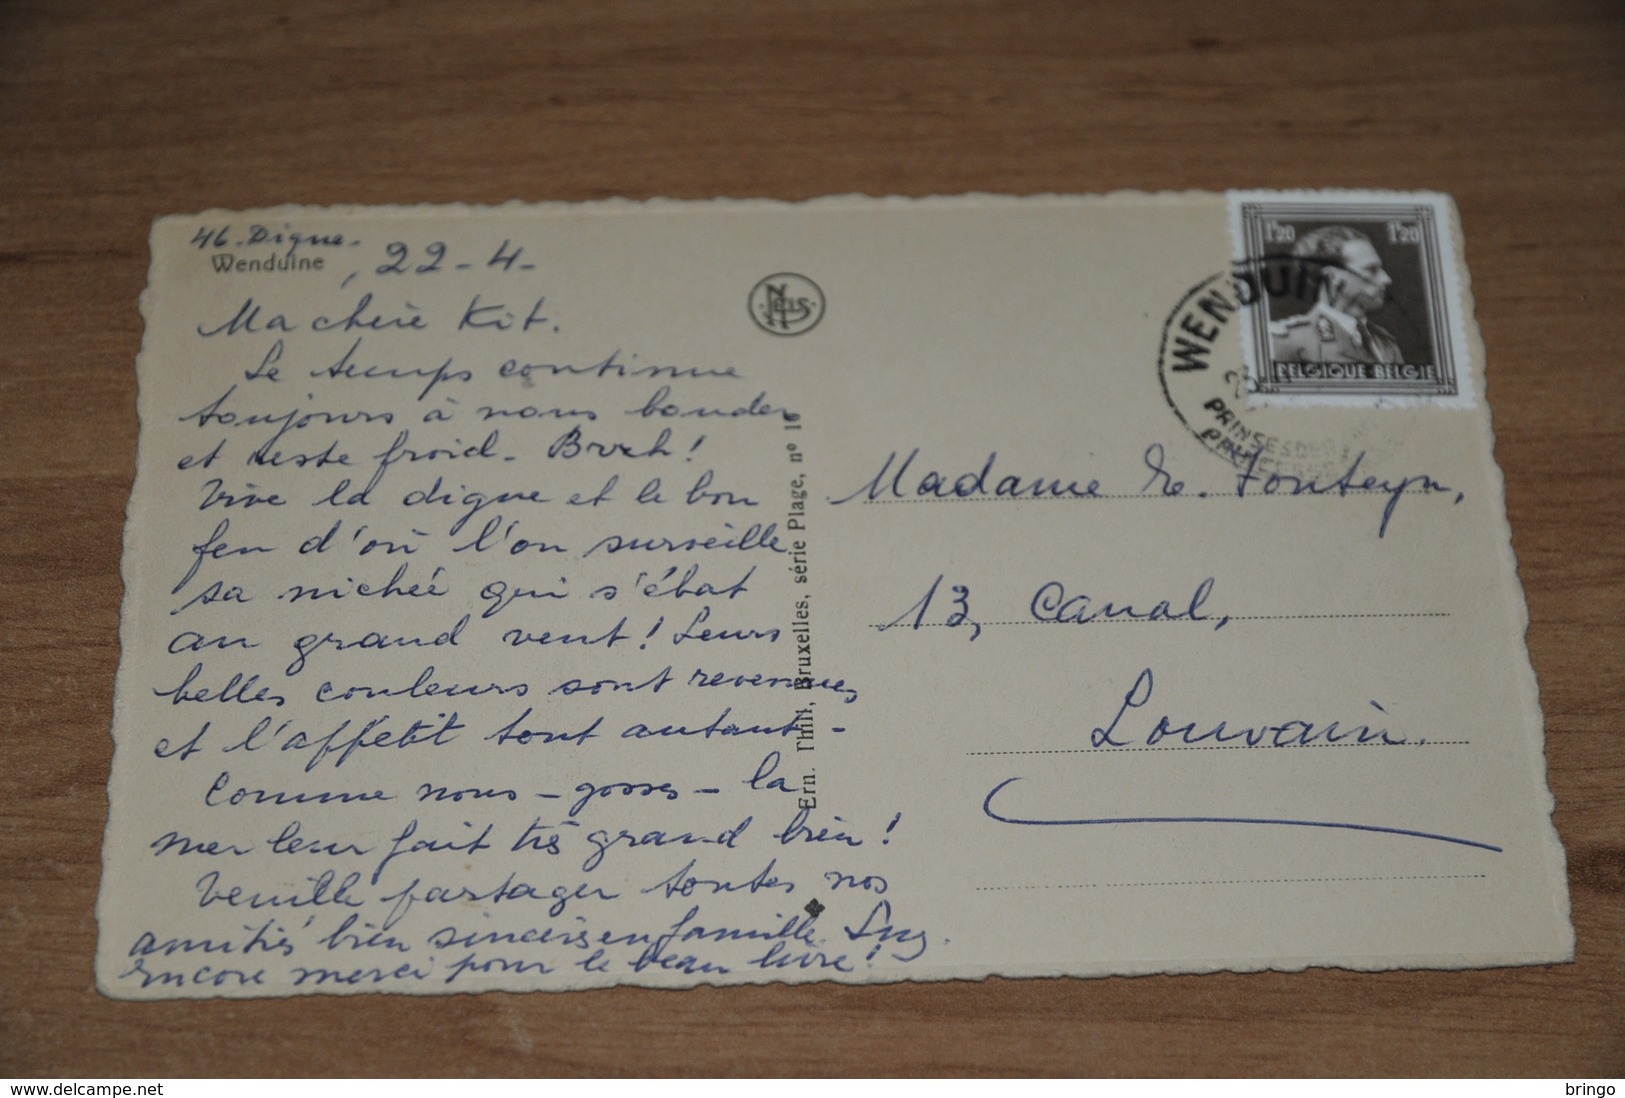 46-Digue-
Wenduine , 22-4-
Ma chère Kit.
Le temps continue
toujours à nous bouder
et reste froid - Brrh!
Vive la digue et le bon
feu d'où l'on surveille
sa nichée qui s'ébat
au grand vent! Leurs
belles couleurs sont revenues
et l'appétit tout autant -
Comme nous - gosses - la
mer leur fait très grand bien!
Veuille partager toutes nos
amitiés bien sincères en famille.
Encore merci pour le beau livre!
Nels
Ern. Thill, Bruxelles, série Plage, nº 16
1F20 1F20
BELGIQUE-BELGIE
WENDUINE
PRINSESSEN
Madame E. Fonteyn,
13, Canal,
Louvain.
www.delcampe.net
bringo